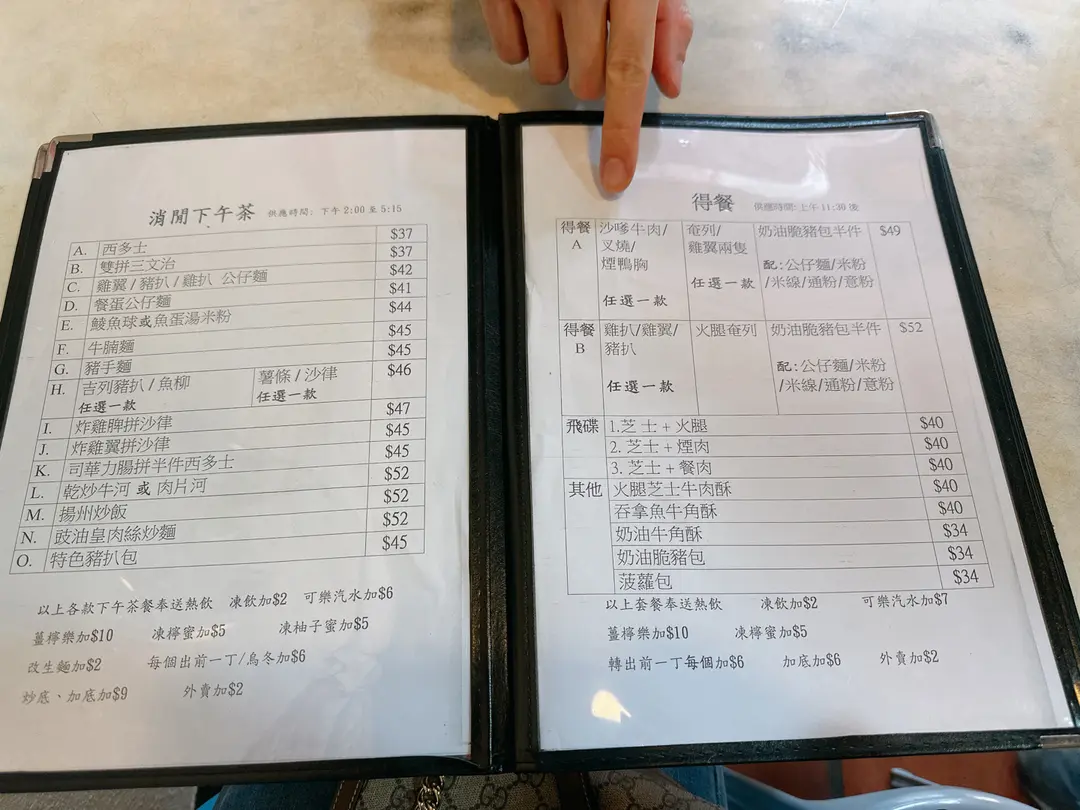 消閒下午茶 供應時間: 下午 2:00 至 5:15
A. 西多士 $37
B. 雙拼三文治 $37
C. 雞翼/豬扒/雞扒 公仔麵 $42
D. 餐蛋公仔麵 $41
E. 鯪魚球或魚蛋湯米粉 $44
F. 牛腩麵 $45
G. 豬手麵 $45
H. 吉列豬扒/魚柳 薯條/沙律 $46
任選一款 任選一款
I. 炸雞脾拼沙律 $47
J. 炸雞翼拼沙律 $45
K. 司華力腸拼半件西多士 $45
L. 乾炒牛河 或 肉片河 $52
M. 揚州炒飯 $52
N. 豉油皇肉絲炒麵 $52
O. 特色豬扒包 $45
以上各款下午茶餐奉送熱飲 凍飲加$2 可樂汽水加$6
薑檸樂加$10 凍檸蜜加$5 凍柚子蜜加$5
改生麵加$2 每個出前一丁/烏冬加$6
炒底、加底加$9 外賣加$2
得餐 供應時間:上午 11:30 後
得餐 A
沙嗲牛肉/
叉燒/
煙鴨胸
任選一款
奄列/
雞翼兩隻
任選一款
奶油脆豬包半件
配:公仔麵/米粉
/米線/通粉/意粉
$49
得餐 B
雞扒/雞翼/
豬扒
任選一款
火腿奄列
奶油脆豬包半件
配:公仔麵/米粉
/米線/通粉/意粉
$52
飛碟 1.芝士+火腿 $40
2.芝士+煙肉 $40
3.芝士+餐肉 $40
其他 火腿芝士牛肉酥 $40
吞拿魚牛角酥 $40
奶油牛角酥 $34
奶油脆豬包 $34
菠蘿包 $34
以上套餐奉送熱飲 凍飲加$2 可樂汽水加$7
薑檸樂加$10 凍檸蜜加$5
轉出前一丁每個加$6 加底加$6 外賣加$2